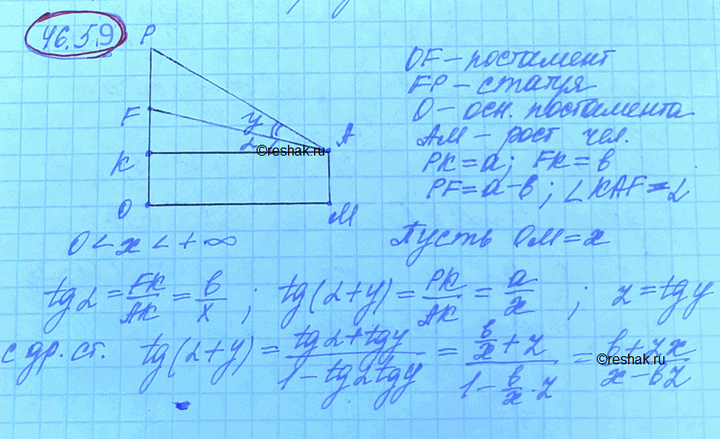 46.59
P
F
y
α
A
K
O
M
©reshak.ru
OF – постамент
FP – статуя
O – осн. постамента
AM – рост чел.
PK = a; FK = b
PF = a – b; ∠KAF = α
0 < x < +∞
Пусть OM = x
tg α = FK/AK = b/x; tg(α+y) = PK/AK = a/x; z = tg y
с др. ст. tg(α+y) = (tg α + tg y)/(1 – tg α tg y) = (b/x + z)/(1 – b/x · z) = (b + zx)/(x – bz)
©reshak.ru